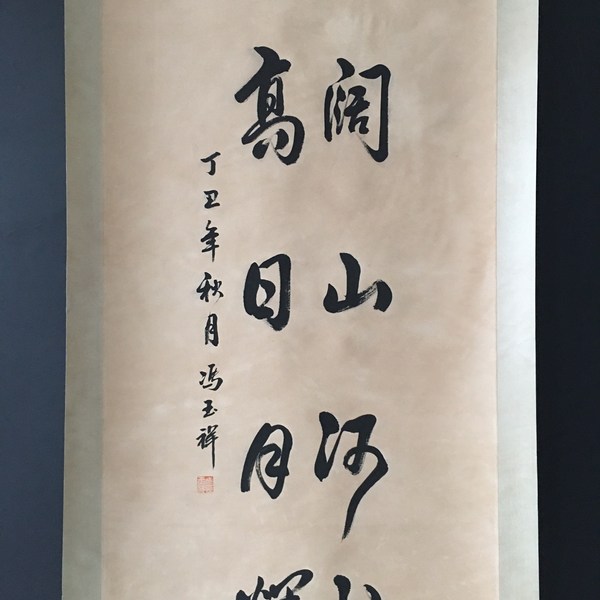 阔山河
高日月
丁丑年秋月冯玉祥